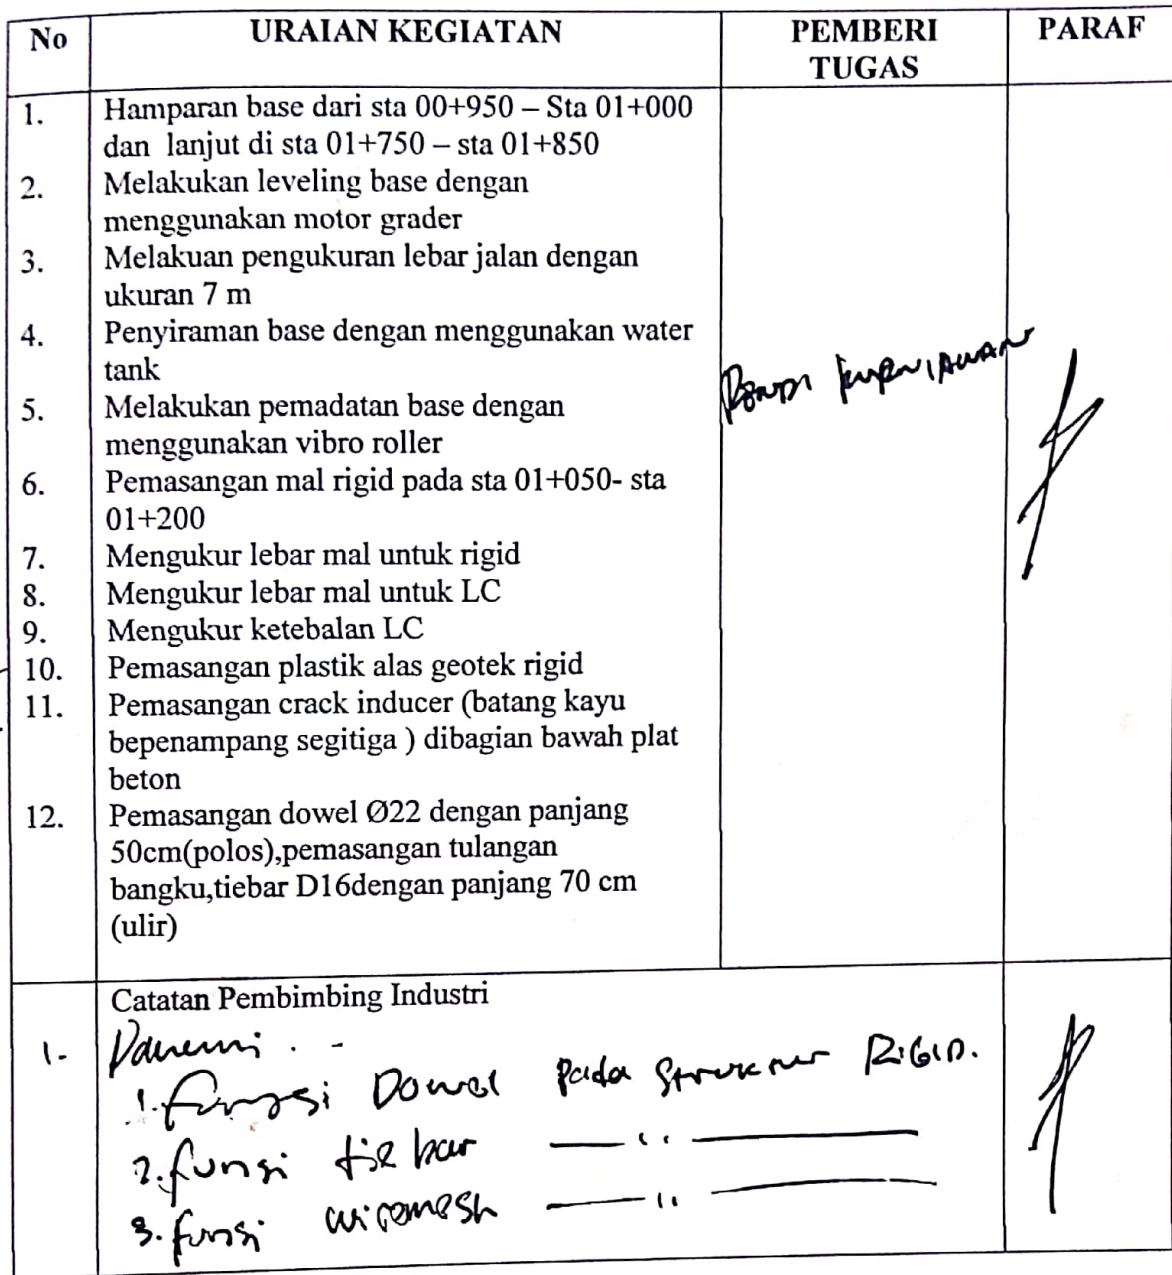 No URAIAN KEGIATAN PEMBERI TUGAS PARAF
1. Hamparan base dari sta 00+950 – Sta 01+000
dan lanjut di sta 01+750 – sta 01+850
2. Melakukan leveling base dengan
menggunakan motor grader
3. Melakuan pengukuran lebar jalan dengan
ukuran 7 m
4. Penyiraman base dengan menggunakan water
tank
5. Melakukan pemadatan base dengan
menggunakan vibro roller
6. Pemasangan mal rigid pada sta 01+050- sta
01+200
7. Mengukur lebar mal untuk rigid
8. Mengukur lebar mal untuk LC
9. Mengukur ketebalan LC
10. Pemasangan plastik alas geotek rigid
11. Pemasangan crack inducer (batang kayu
bepenampang segitiga ) dibagian bawah plat
beton
12. Pemasangan dowel Ø22 dengan panjang
50cm(polos),pemasangan tulangan
bangku,tiebar D16dengan panjang 70 cm
(ulir)
KURNIAWAN
Catatan Pembimbing Industri
1-
1. fungsi Dowel pada struktur RIGID.
2. fungsi tie bar — " —
3. fungsi wiremesh — " —